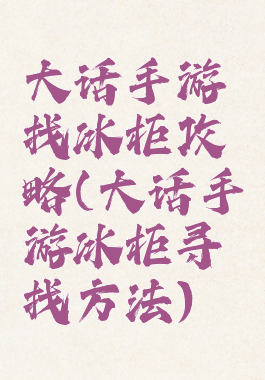 大话手游
找冰柜攻
略(大话手
游冰柜寻
找方法)